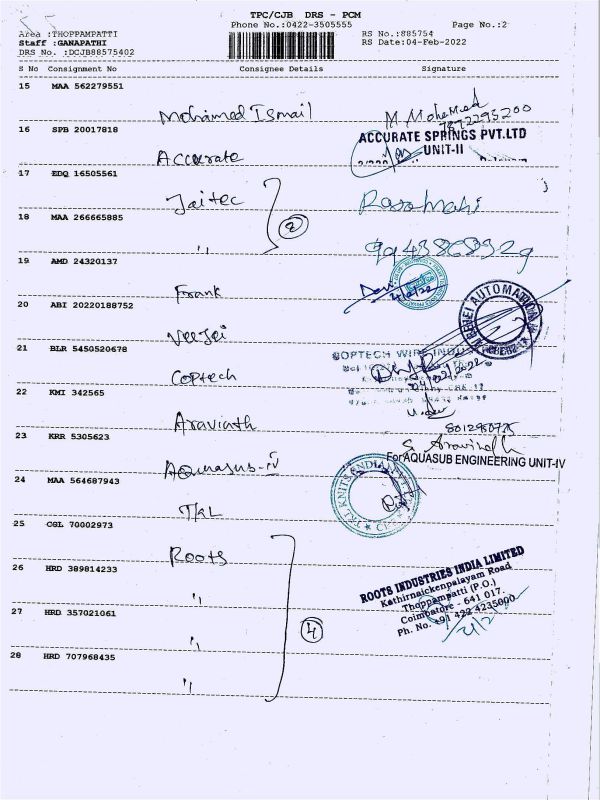 TPC/CJB DRS - PCM
Phone No.:0422-3505555 Page No.:2
Area :THOPPAMPATTI RS No.:885754
Staff :GANAPATHI RS Date:04-Feb-2022
DRS No. :DCJB88575402
S No Consignment No Consignee Details Signature
15 MAA 562279551
Mohamed Ismail M. Mohamed
7872295200
16 SPB 20017818 ACCURATE SPRINGS PVT.LTD
UNIT-II
Accurate
17 EDQ 16505561
Jaitec
18 MAA 266665885 2
"
19 AMD 24320137
Frank 4/2/22
20 ABI 20220188752
VeeJei AUTOMATION
21 BLR 5450520678
COPTECH WIRE INDU
Coptech 04/02/2022
22 KMI 342565
Aravinth
23 KRR 5305623 S. Aravindh
For AQUASUB ENGINEERING UNIT-IV
Aquasub-IV
24 MAA 564687943 TKL KNITS INDIA
TKL
25 CGL 70002973
Roots
26 HRD 389814233
"
27 HRD 357021061 4
"
28 HRD 707968435
"
ROOTS INDUSTRIES INDIA LIMITED
Kathirnaickenpalayam Road
Thoppampatti (P.O.)
Coimbatore - 641 017.
Ph. No. +91 422 4235000